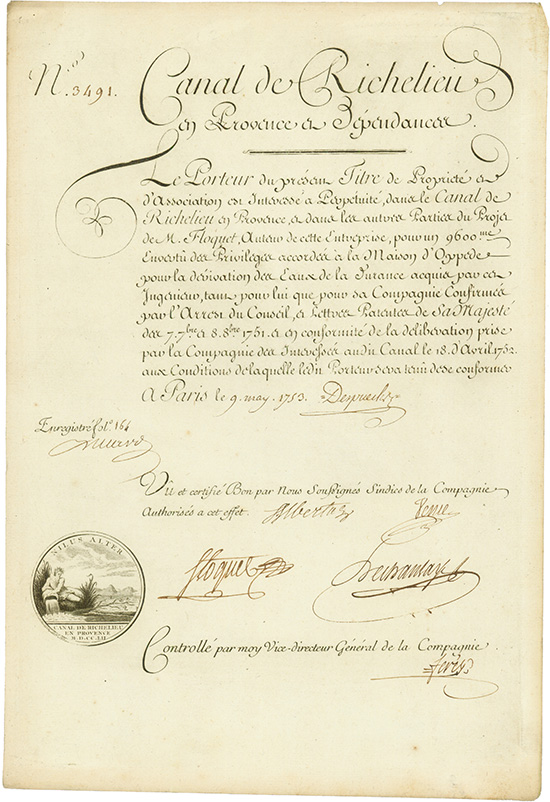 N.º 3491.
Canal de Richelieu
en Provence et Dépendances.
Le Porteur du présent Titre de Propriété et
d'Association est Interessé à Perpétuité, dans le Canal de
Richelieu en Provence, et dans les autres Parties du Projet
de M. Floquet, Auteur de cette Entreprise, pour un 9600.me
En vertû des Privileges accordés à la Maison d'Oppede
pour la dérivation des Eaux de la Durance acquis par cet
Ingénieur, tant pour lui que pour sa Compagnie Confirmés
par l'Arrest du Conseil, et Lettres Patentes de Sa Majesté
des 7. 7.bre et 8. 8.bre 1751. et en conformité de la délibération prise
par la Compagnie des Interessés audit Canal le 18. d'Avril 1752.
aux Conditions de laquelle ledit Porteur sera tenu de se conformer
A Paris le 9. may. 1753.
Enregistré fol.º 164
Vû et certifié Bon par Nous Soussignés Sindics de la Compagnie
Authorisés a cet effet. Albertas
Floquet
NILUS ALTER
CANAL DE RICHELIEU
EN PROVENCE
M.D.CC.LII
Controllé par moy Vice-directeur Général de la Compagnie